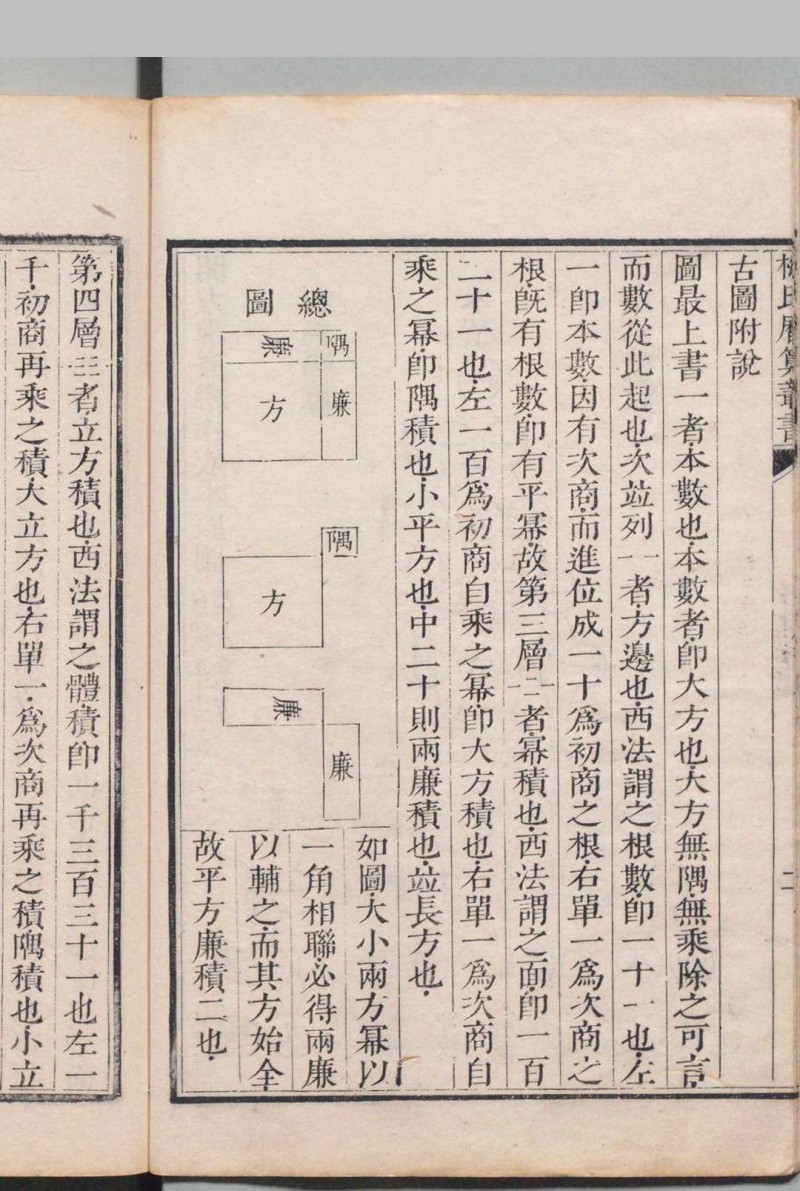 梅氏曆算叢書
二
古圖附說
圖最上書一者本數也本數者卽大方也大方無隅無乘除之可言
而數從此起也次竝列一一者方邊也西法謂之根數卽一十一也左
一卽本數因有次商而進位成一十爲初商之根右單一爲次商之
根旣有根數卽有平冪故第三層一二一者冪積也西法謂之面卽一百
二十一也左一百爲初商自乘之冪卽大方積也右單一爲次商自
乘之冪卽隅積也小平方也中二十則兩廉積也竝長方也
總圖
隅
廉
廉
方
隅
方
廉
廉
如圖大小兩方冪以
一角相聯必得兩廉
以輔之而其方始全
故平方廉積二也
第四層一三三一者立方積也西法謂之體積卽一千三百三十一也左一
千初商再乘之積大立方也右單一爲次商再乘之積隅積也小立